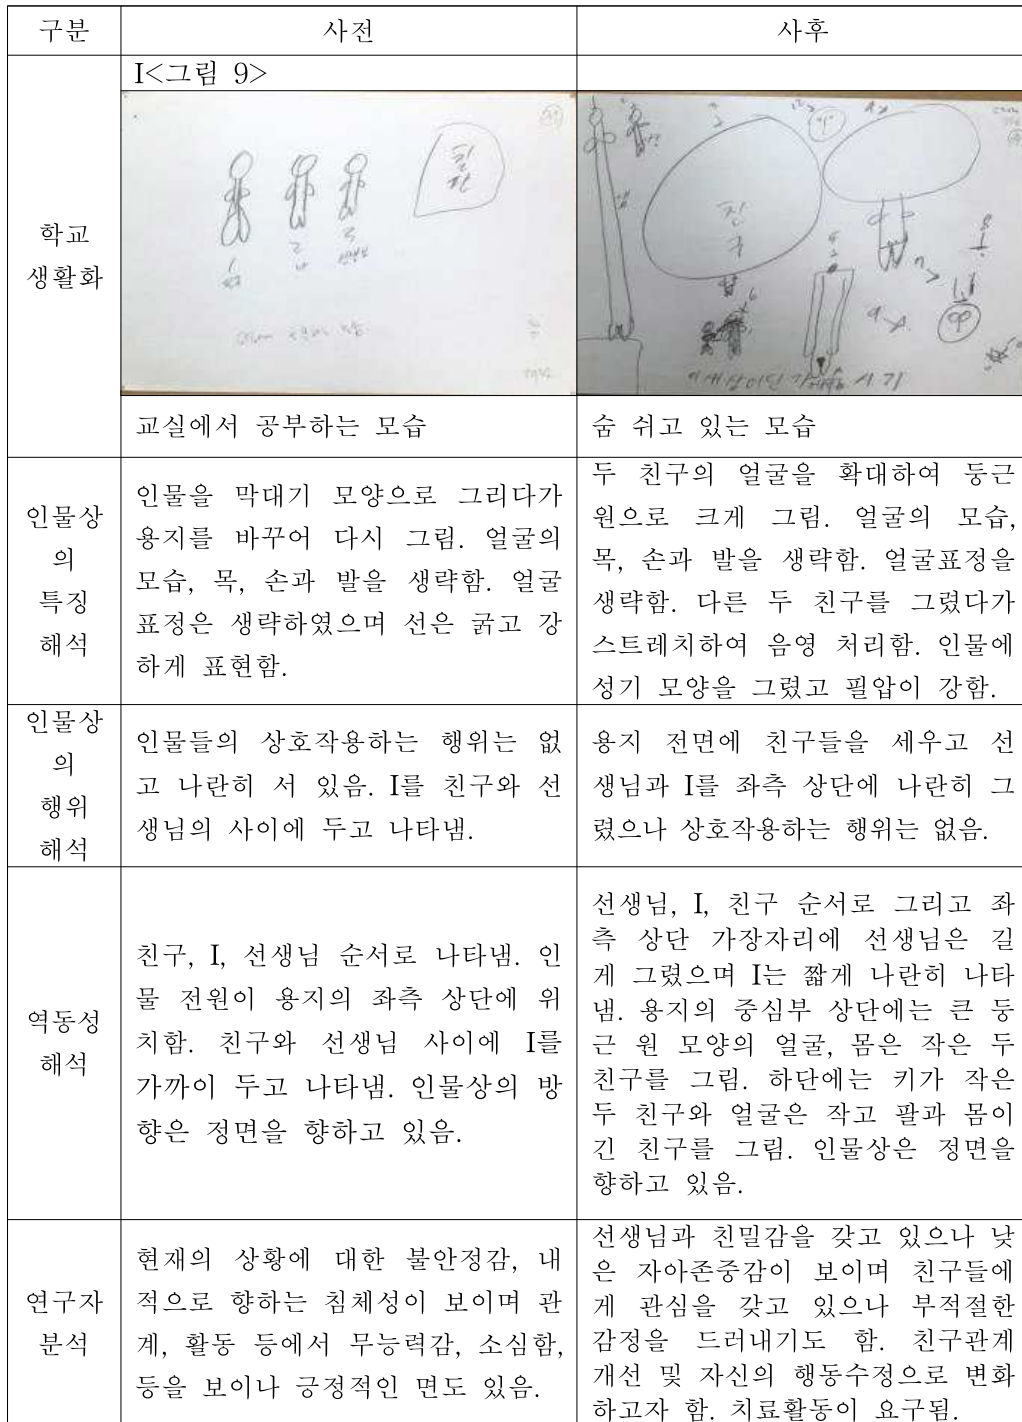 구분
사전
사후
I<그림 9>
학교
생활화
친
구
교실에서 공부하는 모습
숨 쉬고 있는 모습
인물상
의
특징
해석
인물을 막대기 모양으로 그리다가
용지를 바꾸어 다시 그림. 얼굴의
모습, 목, 손과 발을 생략함. 얼굴
표정은 생략하였으며 선은 굵고 강
하게 표현함.
두 친구의 얼굴을 확대하여 둥근
원으로 크게 그림. 얼굴의 모습,
목, 손과 발을 생략함. 얼굴표정을
생략함. 다른 두 친구를 그렸다가
스트레치하여 음영 처리함. 인물에
성기 모양을 그렸고 필압이 강함.
인물상
의
행위
해석
인물들의 상호작용하는 행위는 없
고 나란히 서 있음. I를 친구와 선
생님의 사이에 두고 나타냄.
용지 전면에 친구들을 세우고 선
생님과 I를 좌측 상단에 나란히 그
렸으나 상호작용하는 행위는 없음.
역동성
해석
친구, I, 선생님 순서로 나타냄. 인
물 전원이 용지의 좌측 상단에 위
치함. 친구와 선생님 사이에 I를
가까이 두고 나타냄. 인물상의 방
향은 정면을 향하고 있음.
선생님, I, 친구 순서로 그리고 좌
측 상단 가장자리에 선생님은 길
게 그렸으며 I는 짧게 나란히 나타
냄. 용지의 중심부 상단에는 큰 둥
근 원 모양의 얼굴, 몸은 작은 두
친구를 그림. 하단에는 키가 작은
두 친구와 얼굴은 작고 팔과 몸이
긴 친구를 그림. 인물상은 정면을
향하고 있음.
연구자
분석
현재의 상황에 대한 불안정감, 내
적으로 향하는 침체성이 보이며 관
계, 활동 등에서 무능력감, 소심함,
등을 보이나 긍정적인 면도 있음.
선생님과 친밀감을 갖고 있으나 낮
은 자아존중감이 보이며 친구들에
게 관심을 갖고 있으나 부적절한
감정을 드러내기도 함. 친구관계
개선 및 자신의 행동수정으로 변화
하고자 함. 치료활동이 요구됨.